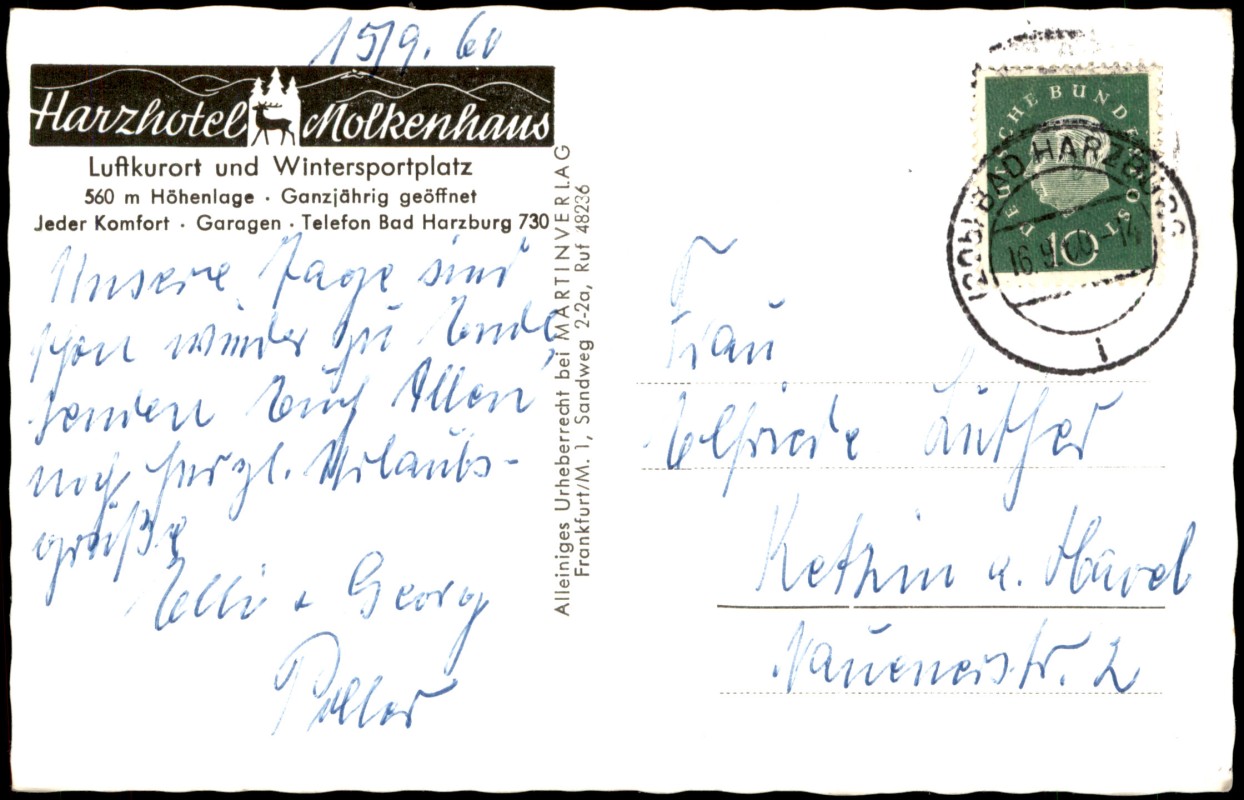 15/9. 60
Harzhotel Molkenhaus
Luftkurort und Wintersportplatz
560 m Höhenlage · Ganzjährig geöffnet
Jeder Komfort · Garagen · Telefon Bad Harzburg 730
Unsere Tage sind
schon wieder zu Ende,
senden Euch Allen
noch herzl. Urlaubs-
grüße
Elli + Georg
Alleiniges Urheberrecht bei MARTINVERLAG
Frankfurt/M. 1, Sandweg 2-2a, Ruf 48236
DEUTSCHE BUNDESPOST
10
BAD HARZBURG
16.9.60.-14
i
Frau
Elfriede Luther
Ketzin a. Havel
Nauenerstr. 2